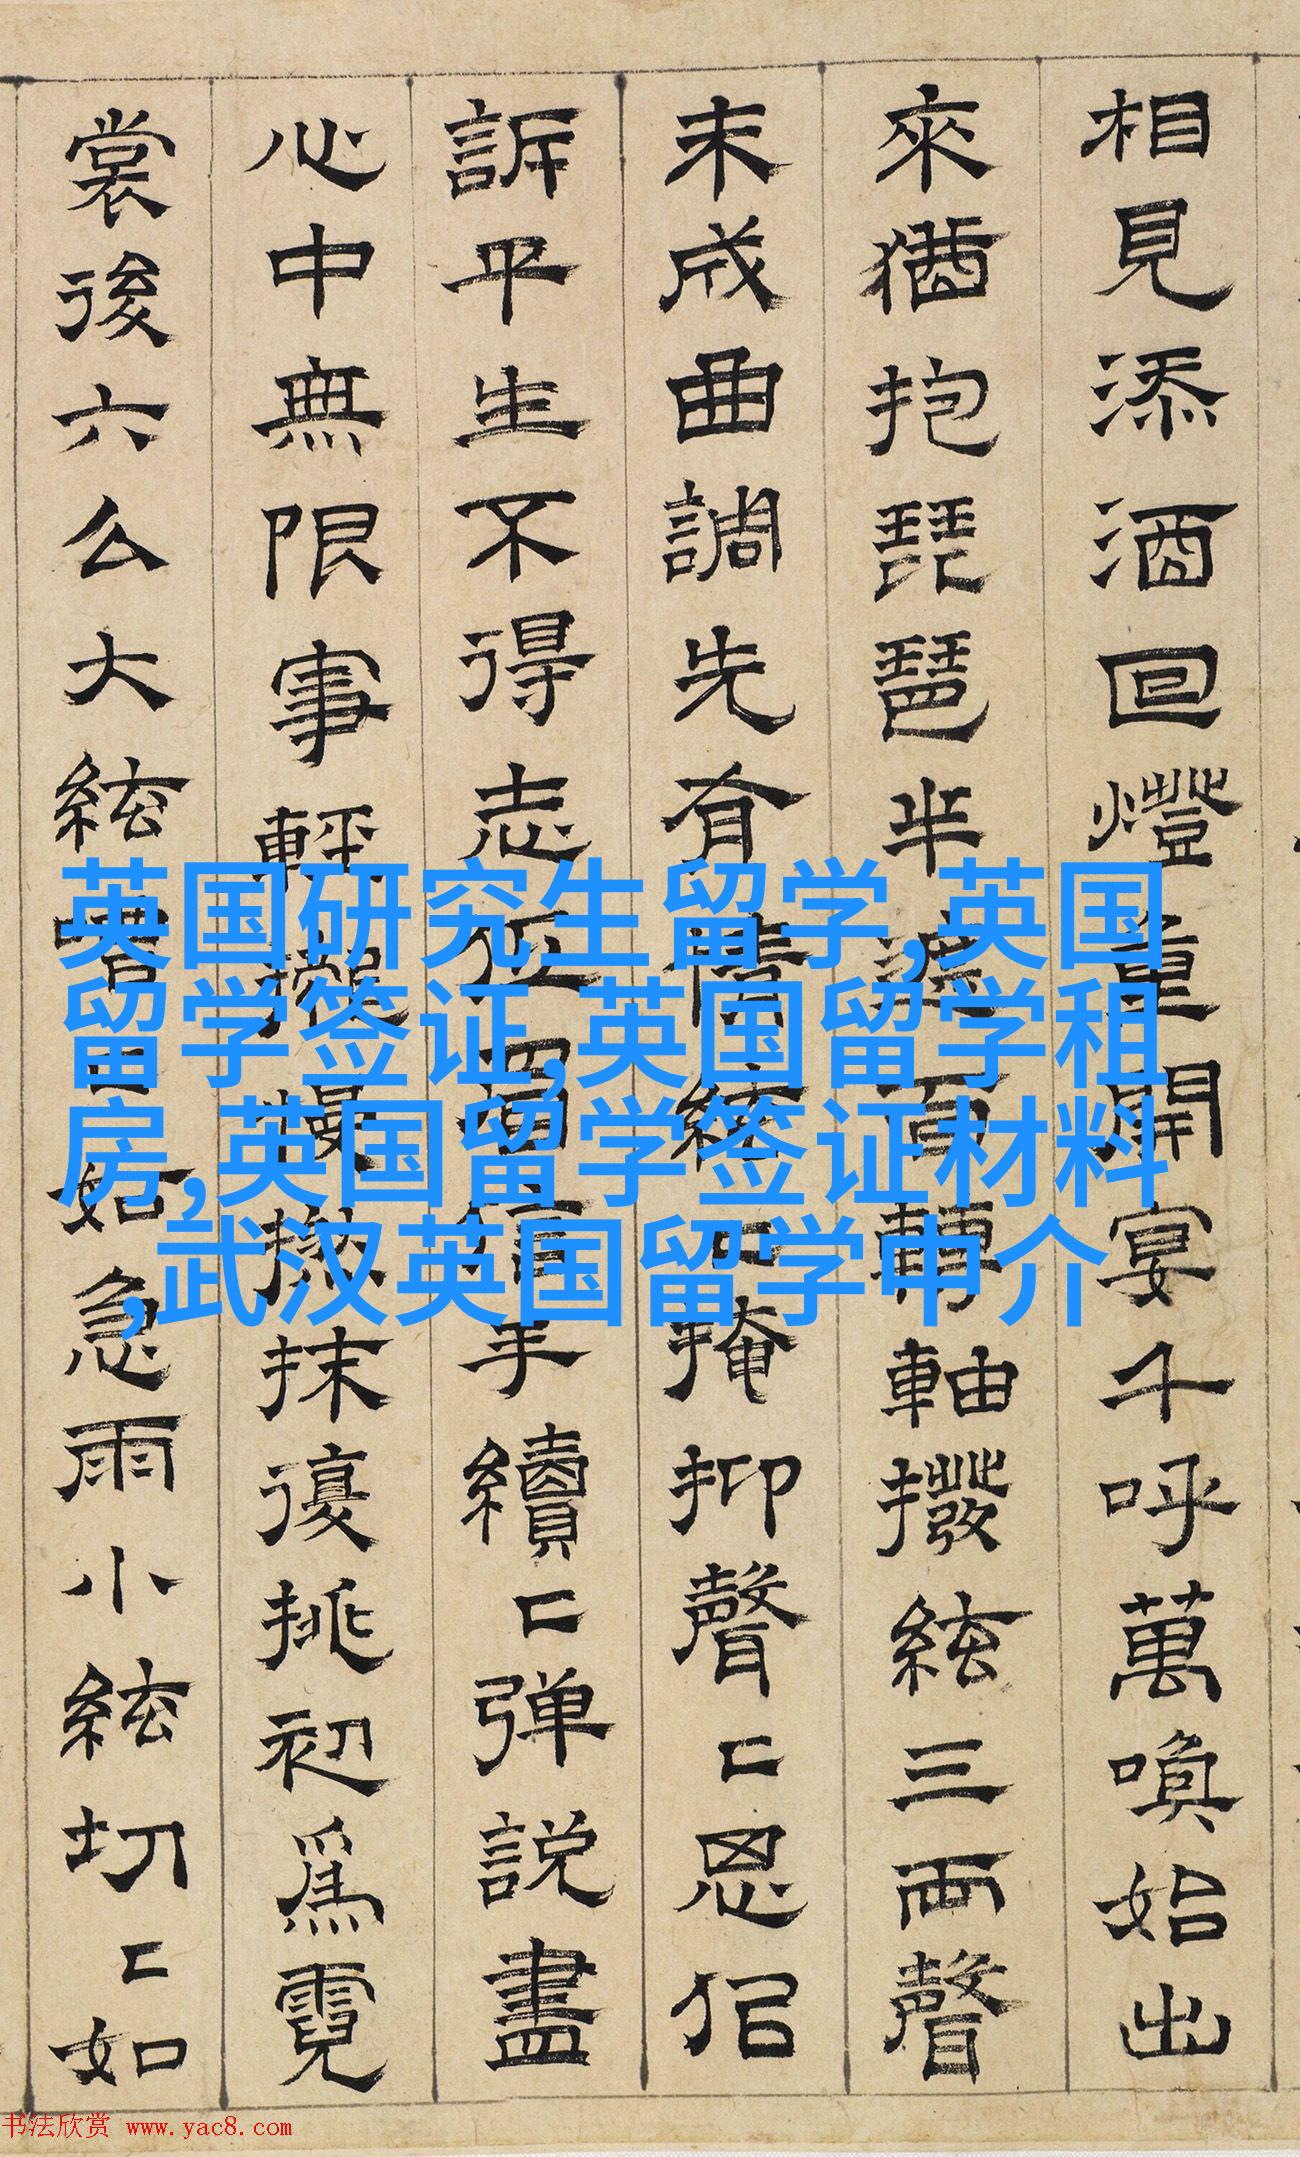 相見添酒回燈重開宴千呼萬喚始出
來猶抱琵琶半遮面轉軸撥絃三兩聲
未成曲調先有情絃〻掩抑聲〻思似
訴平生不得志低眉信手續〻弹説盡
心中無限事輕攏慢撚抹復挑初爲霓
裳後六么大絃嘈〻如急雨小絃切〻如
英国研究生留学,英国
留学签证,英国留学租
房,英国留学签证材料
,武汉英国留学中介
书法欣赏 www.yac8.com